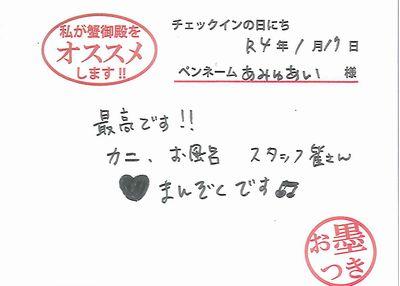 私が蟹御殿を
オススメ
します!!
チェックインの日にち
R4年1月17日
ペンネーム あみゅあい 様
最高です!!
カニ、お風呂 スタッフ皆さん
♥まんぞくです♫
お墨
つき